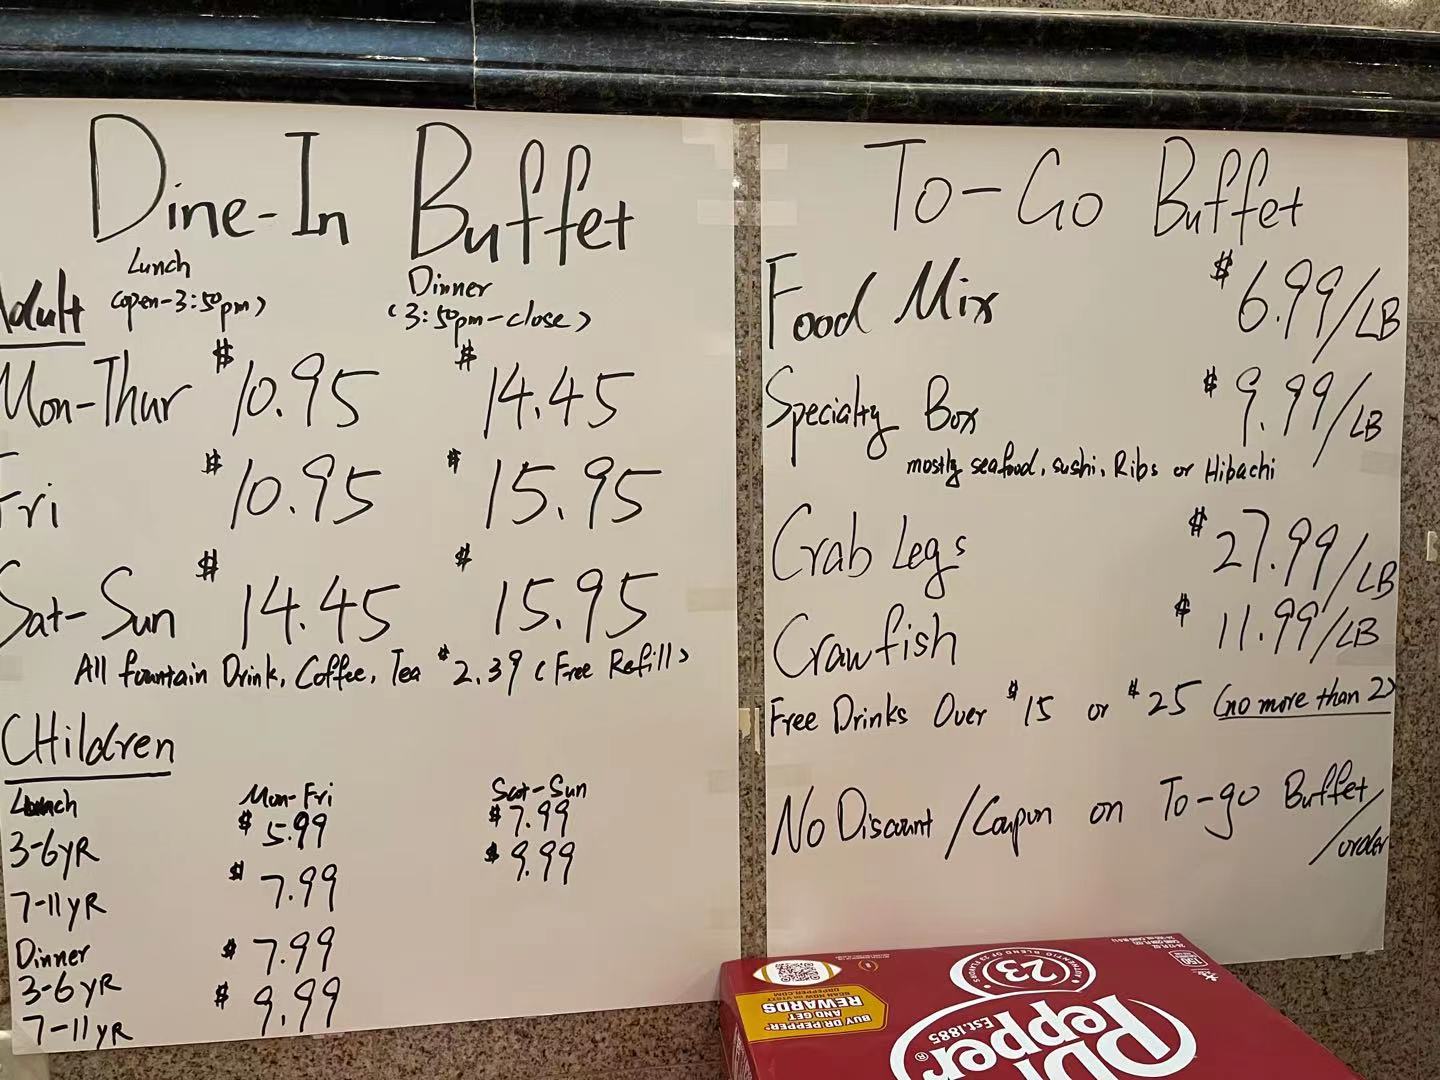 Dine-In Buffet
Lunch
Dinner
Adult
(open-3:50pm)
(3:50pm-close)
Mon-Thur $10.95 $14.45
Fri $10.95 $15.95
Sat-Sun $14.45 $15.95
All fountain Drink, Coffee, Tea $2.39 (Free Refill)
CHildren
Lunch Mon-Fri Sat-Sun
3-6yR $5.99 $7.99
7-11yR $7.99 $9.99
Dinner
3-6yR $7.99
7-11yR $9.99
To-Go Buffet
Food Mix $6.99/LB
Specialty Box $9.99/LB
mostly seafood, sushi, Ribs or Hibachi
Crab Legs $27.99/LB
Crawfish $11.99/LB
Free Drinks Over $15 or $25 (no more than 2)
No Discount/Coupon on To-go Buffet
/order
23
AUTHENTIC BLEND OF 23 FLAVORS
Dr Pepper
Est.1885
BUY DR PEPPER
AND GET
REWARDS
SCAN NOW or VISIT
DRPEPPER.COM
150